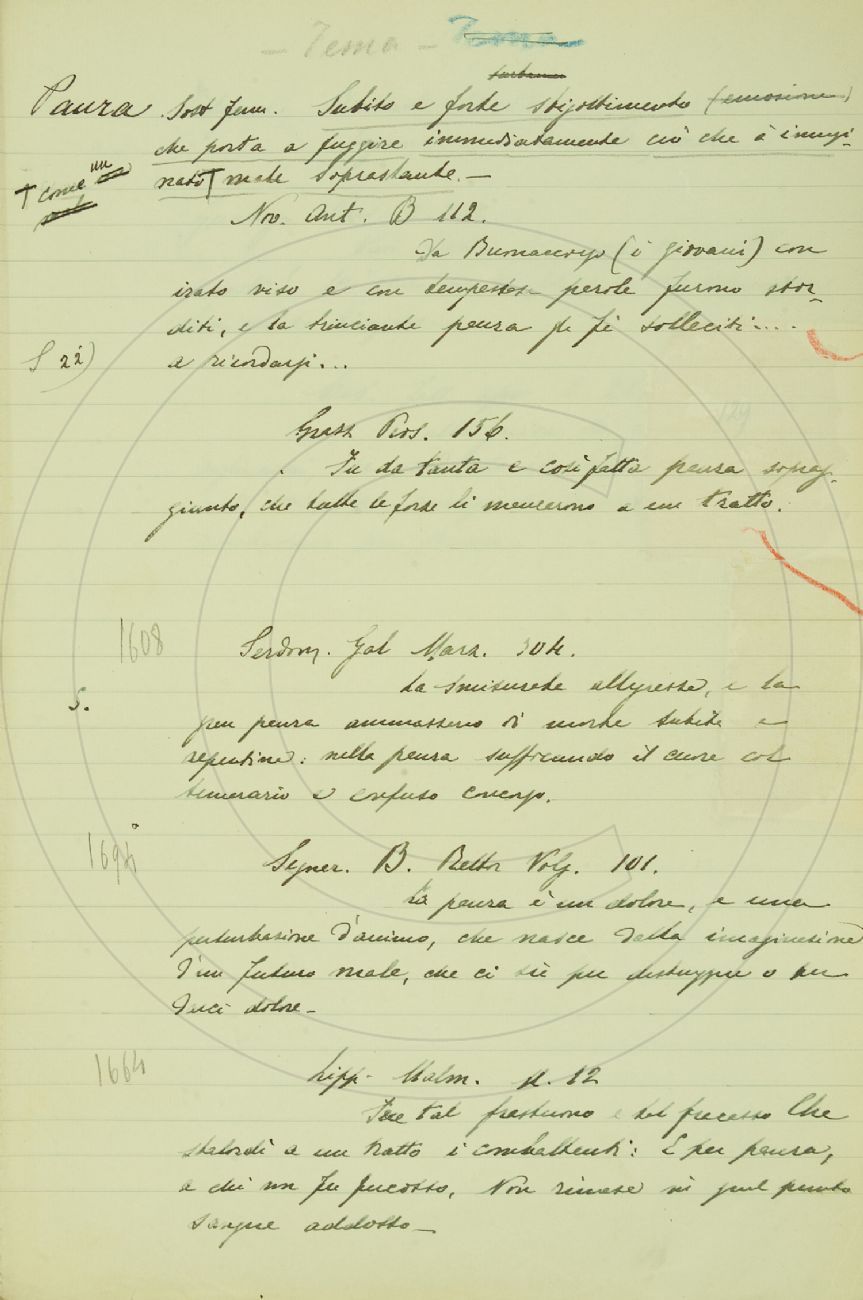 - Tema -
Paura Sost. fem. Subito e forte sbigottimento (emosione)
che porta a fuggire immediatamente ciò che è immagi-
nato † male soprastante. —
† come un
Nov. Ant. B 112.
Da Buonaccorso (i giovani) con
irato viso e con tempestose parole furono stor-
diti, e la trinciante paura gli fè solleciti....
S 22)
a ricordarsi...
Grazz. Pros. 156.
Fu da tanta e così fatta paura soprag-
giunto, che tutte le forze li mancarono a un tratto.
1608
Serdon. Gal Marz. 304.
S.
La smisurata allegrezza, e la
gran paura ammazzano di morte subita e
repentina: nella paura soffocando il cuore col
temerario e confuso concorso.
1694
Segner. B. Rettor. Volg. 101.
La paura è un dolore, e una
perturbazione d'animo, che nasce dalla imaginazione
d'un futuro male, che ci sia per distruggere o per
darci dolore —
1664
Lipp. Malm. 11. 12
Fu tal frastuono e tal fracasso che
stalordì a un tratto i combattenti: E per paura,
a chi non fu percosso, Non rimase in quel punto
sangue addosso —